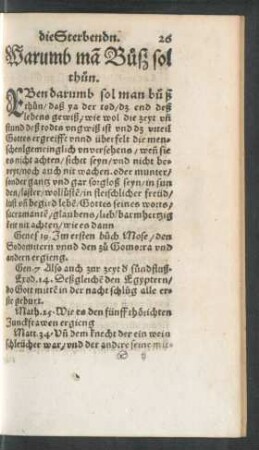 die Sterbendn. 26
Warumb mā Bůſʒ ſol
thůn.
EBen darumb ſol man bůſʒ
thůn / daſʒ ya der tod / dʒ end deſʒ
lebens gewiſʒ / wie wol die zeyt vñ
ſtund deſʒ todts vngwiſʒ iſt vnd dʒ vrteil
Gottes ergreifft vnnd überfelt dir men-
ſchen gemeinglich vnuerſehens / wen̄ ſie
es nicht achten / ſicher ſeyn / vnd nicht be-
reyt / noch auch nit wachen. oder munter /
ſonder gantz vnd gar ſorgloſʒ ſeyn / in ſun
den / laſter / wollůſtē / in fleiſchlicher freüd /
luſt vn̄ begird lebē / Gottes ſeines worts /
ſacramentē / glaubens / lieb / barmhertzig
keit nit achten / wie es dann
Geneſ. 19. Im erſten bůch Moſe / den
Sodomitern vnnd den zů Gomorra vnd
andern ergieng.
Gen. 7 Alſo auch zur zeyt ď ſündfluſʒ
Exod. 14. Deſʒgleichē den Egyptern /
do Gott mittē in der nacht ſchlůg alle er-
ſte geburt.
Math. 25. Wie es den fünff thörichten
Junckfrawen ergieng
Matt. 24. Vn̄ dem knecht der ein wein
ſchleücher war / vnd der andere ſeine mit-